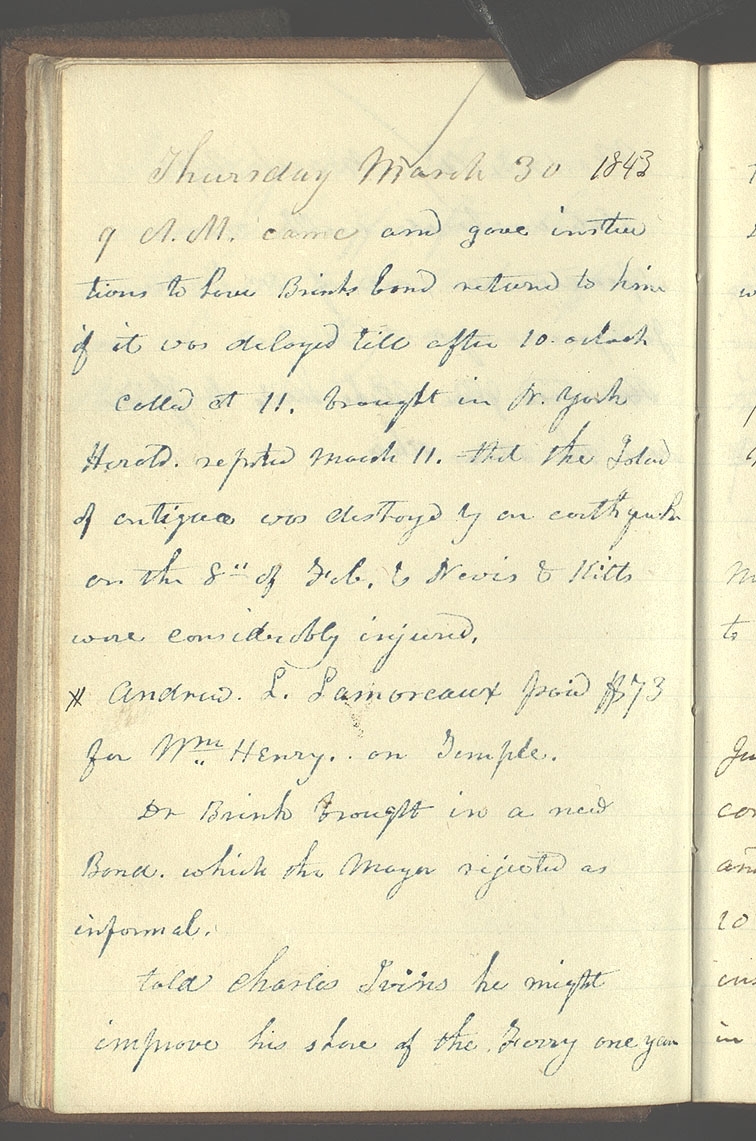 Thursday March 30 1843
9 A.M. came and gave instruc
tions to have Brinks bond returnd to him
if it was delayed till after 10. oclock
called at 11. brought in N. York
Herald. reported March 11. that the Island
of antigua was destroyd by an earthquake
on the 8" of Feb, & Nevis & Kitts
were considerably injured.
Andrew. L. Lamoreaux paid $73
for Wm Henry. on Temple.
Dr Brink brought in a new
Bond. which the Mayor rejected as
informal.
told Charles Ivins he might
improve his share of the Ferry one year